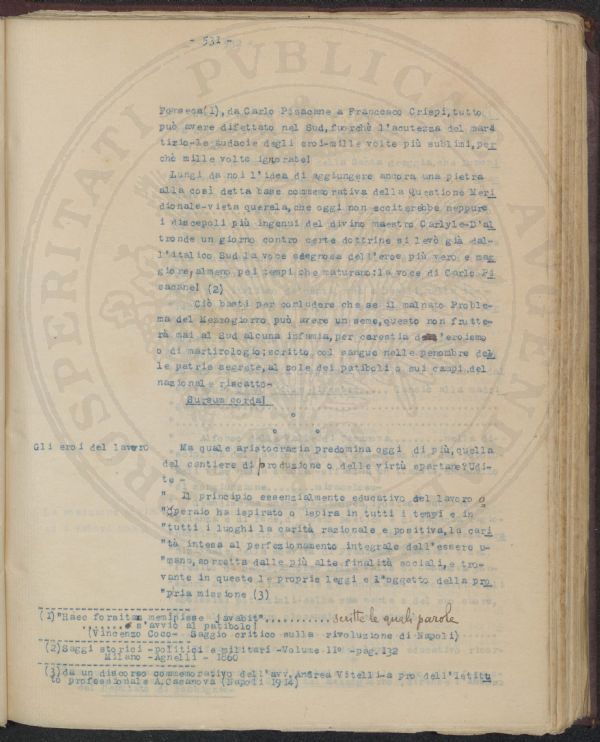 - 531 -
Fonseca(1), da Carlo Pisacane a Francesco Crispi, tutto
può avere difettato nel Sud, fuorchè l'acutezza del mar
tirio-le audacie degli eroi-mille volte più sublimi, per
chè mille volte ignorate!
Lungi da noi l'idea di aggiungere ancora una pietra
alla così detta base commemorativa della Questione Meri
dionale-vieta querela, che oggi non ecciterebbe neppure
i discepoli più ingenui del divino maestro Carlyle-D'al
tronde un giorno contro certe dottrine si levò già dal-
l'italico Sud la voce sdegnosa dell'eroe più vero e mag
giore, almeno pei tempi che maturano: la voce di Carlo Pi
sacane! (2)
Ciò basti per concludere che se il malnato Proble-
ma del Mezzogiorno può avere un seme, questo non frutte-
rà mai al Sud alcuna infamia, per carestia d'eroismo
o di martirologio: scritto, col sangue nelle penombre del
le patrie segrete, al sole dei patiboli o sui campi del
nazionale riscatto-
Sursum corda!
° ° °
Gli eroi del lavoro
Ma quale aristocrazia predomina oggi di più, quella
del cantiere di produzione o delle virtù spartane? Udi-
te -
" Il principio essenzialmente educativo del lavoro o
"peraio ha ispirato e ispira in tutti i tempi e in
"tutti i luoghi la carità razionale e positiva, la cari
"tà intesa al perfezionamento integrale dell'essere u-
"mano, sorretta dalle più alte finalità sociali, e tro-
vante in queste le proprie leggi e l'oggetto della pro
"pria missione (3)
(1) "Haec forsitan meminisse juvabit"............ scritte le quali parole
...... s'avviò al patibolo!
(Vincenzo Coco- Saggio critico sulla rivoluzione di Napoli)
(2) Saggi storici -politici e militari -Volume II° -pag. 132
Milano -Agnelli - 1860
(3) da un discorso commemorativo dell'avv. Andrea Vitelli-a pro dell'Istitu
to professionale A. Casanova (Napoli 1914)